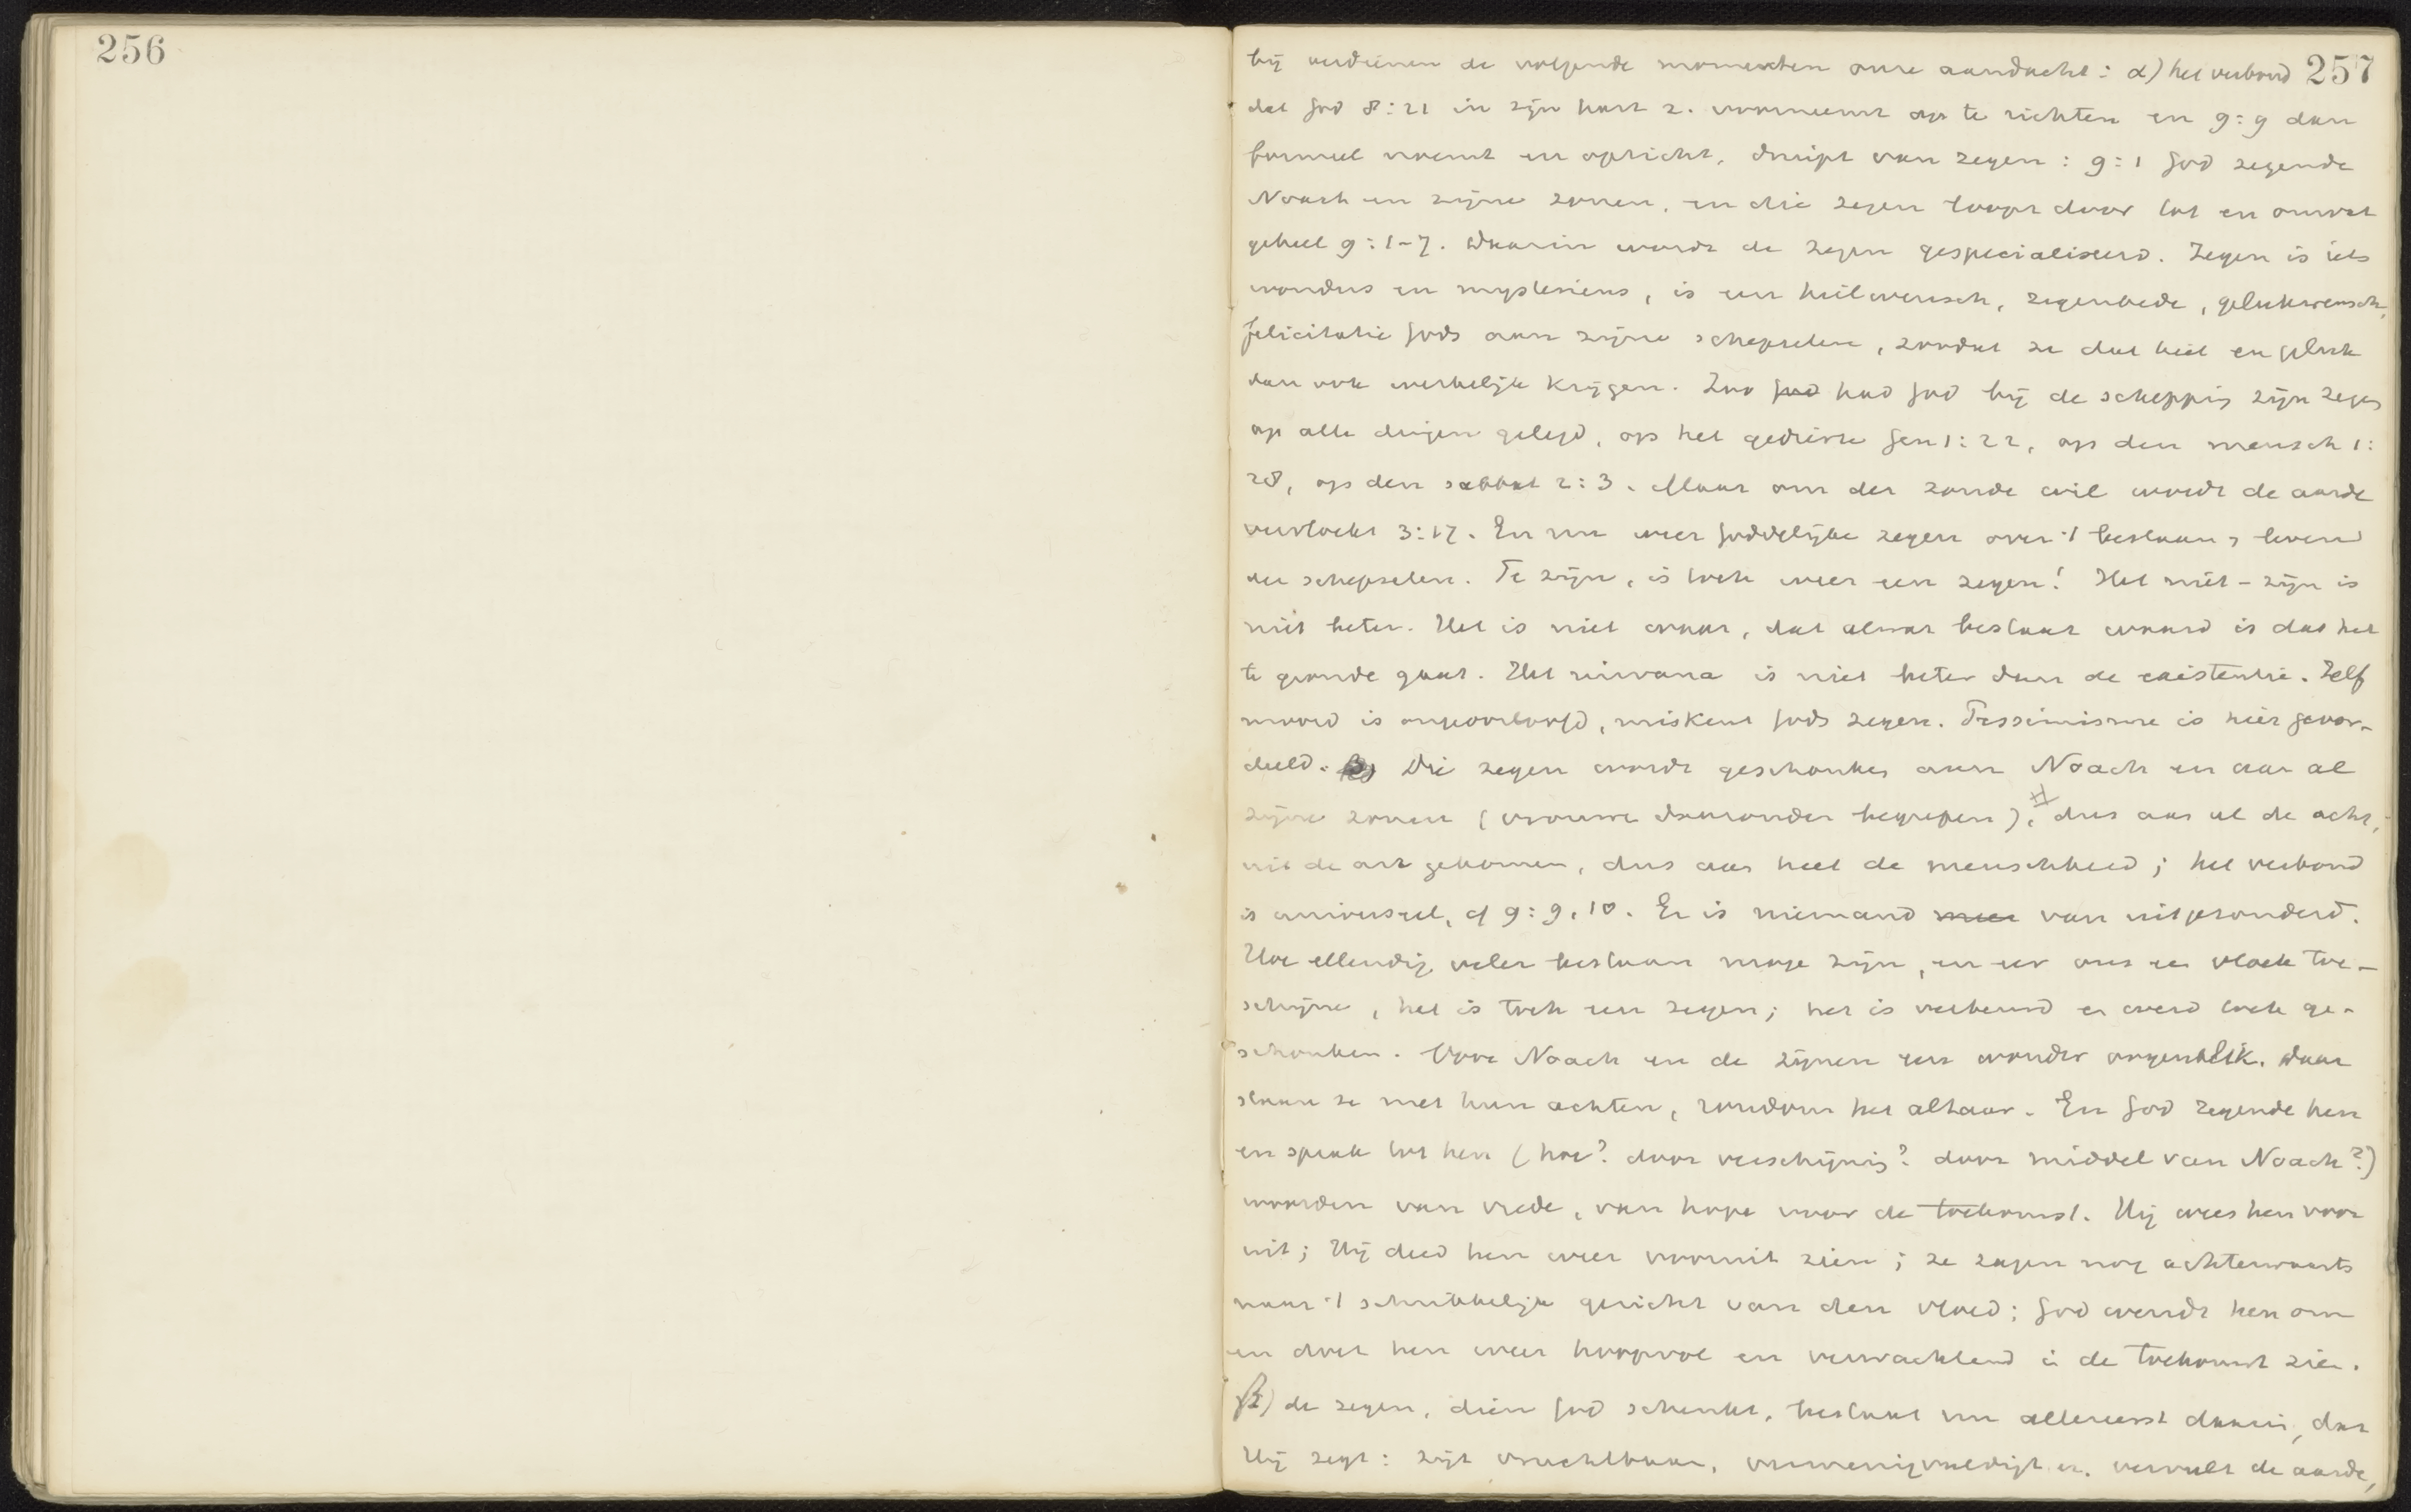 256
257
bij verdienen de volgende momenten onze aandacht: α) het verbond
dat God 8:21 in zijn hart z. voorneemt op te richten en 9:9 dan
formeel noemt en opricht, druipt van zegen: 9:1 God zegende
Noach en zijne zonen, en die zegen loopt door tot en omvat
geheel 9:1-7. Daarin wordt de zegen gespecialiseerd. Zegen is iets
wonders en mysterieus, is een heilwensch, zegenbede, gelukwensch,
felicitatie Gods aan zijne schepselen, zoodat ze dat heil en geluk
dan ook werkelijk krijgen. Zoo God had God bij de schepping zijn zegen
op alle dingen gelegd, op het gedierte Gen 1:22, op den mensch 1:
28, op den sabbat 2:3. Maar om der zonde wil wordt de aarde
vervloekt 3:17. En nu weer Goddelijke zegen over 't bestaan, leven
der schepselen. Te zijn, is toch weer een zegen! Het niet-zijn is
niet beter. Het is niet waar, dat alwat bestaat waard is dat het
te gronde gaat. Het nirvana is niet beter dan de existentie. Zelf
moord is ongeoorloofd, miskent Gods zegen. Pessimisme is hier geoor-
deeld. β) Die zegen wordt geschonken aan Noach en aan al
zijne zonen (vrouwen daaronder begrepen), # dus aan al de acht,
uit de ark gekomen, dus aan heel de menschheid; het verbond
is universeel, cf 9:9,10. Er is niemand meer van uitgezonderd.
Hoe ellendig veler bestaan moge zijn, en eer ons een vloek toe-
schijne, het is toch een zegen; het is verbeurd en werd toch ge-
schonken. Voor Noach en de zijnen een wonder oogenblik. Daar
staan ze met hun achten, rondom het altaar. En God zegende hen
en sprak tot hen (hoe? door verschijning? door middel van Noach?)
woorden van vrede, van hope voor de toekomst. Hij wees hen voor
uit; Hij deed hen weer vooruit zien; ze zagen nog achterwaarts
naar 't schrikkelijk gericht van den vloed; God wendt hen om
en doet hen weer hoopvol en verwachtend in de toekomst zien.
β) de zegen, dien God schenkt, bestaat nu allereerst daarin, dat
Hij zegt: zijt vruchtbaar, vermenigvuldigt en vervult de aarde,